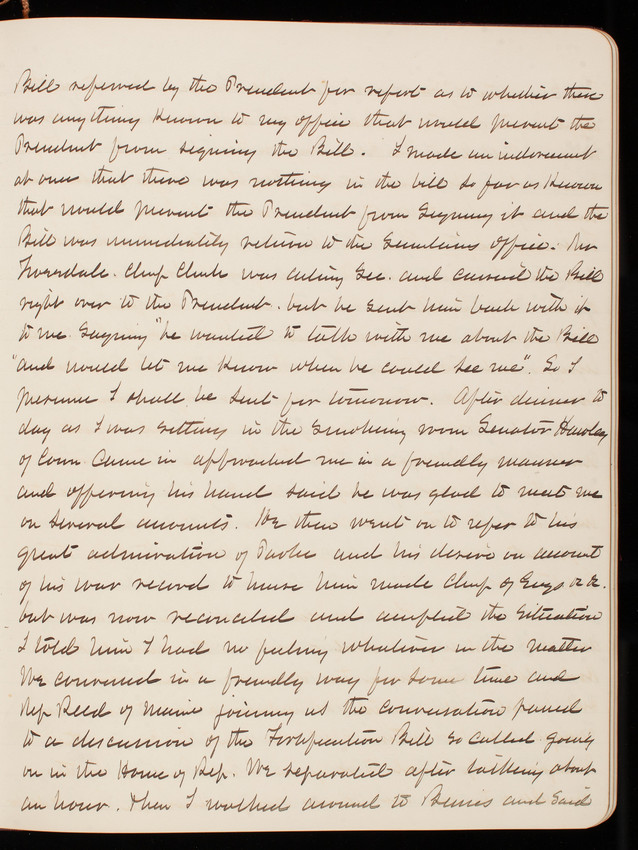 Bill referred by the President for report as to whether there
was anything Known to my office that would prevent the
President from signing the Bill. I made an indorsement
at once that there was nothing in the bill so far as Known
that would prevent the President from Signing it and the
Bill was immediately return to the Secretaries office. Mr
Chief Clerk was acting Sec. and carried the Bill
right over to the President. but he sent him back with it
to me Saying "he wanted to talk with me about the Bill
"and would let me Know when he could see me". So I
presume I shall be sent for tomorrow. After dinner to
day as I was sitting in the smoking room Senator Hawley
of Conn. Came in approached me in a friendly manner
and offering his hand said he was glad to meet me
on several accounts. He then went on to refer to his
great admiration of and his desire on account
of his war record to have him made Chief of Engs
but was now reconciled and accepted the Situation
I told him I had no feeling whatever in the matter
We conversed in a friendly way for some time and
Rep Reed of Maine joining us the conversation passed
to a discussion of the Fortification Bill so called going
on in the House of Rep. We separated after talking about
an hour. Then I walked around to and said